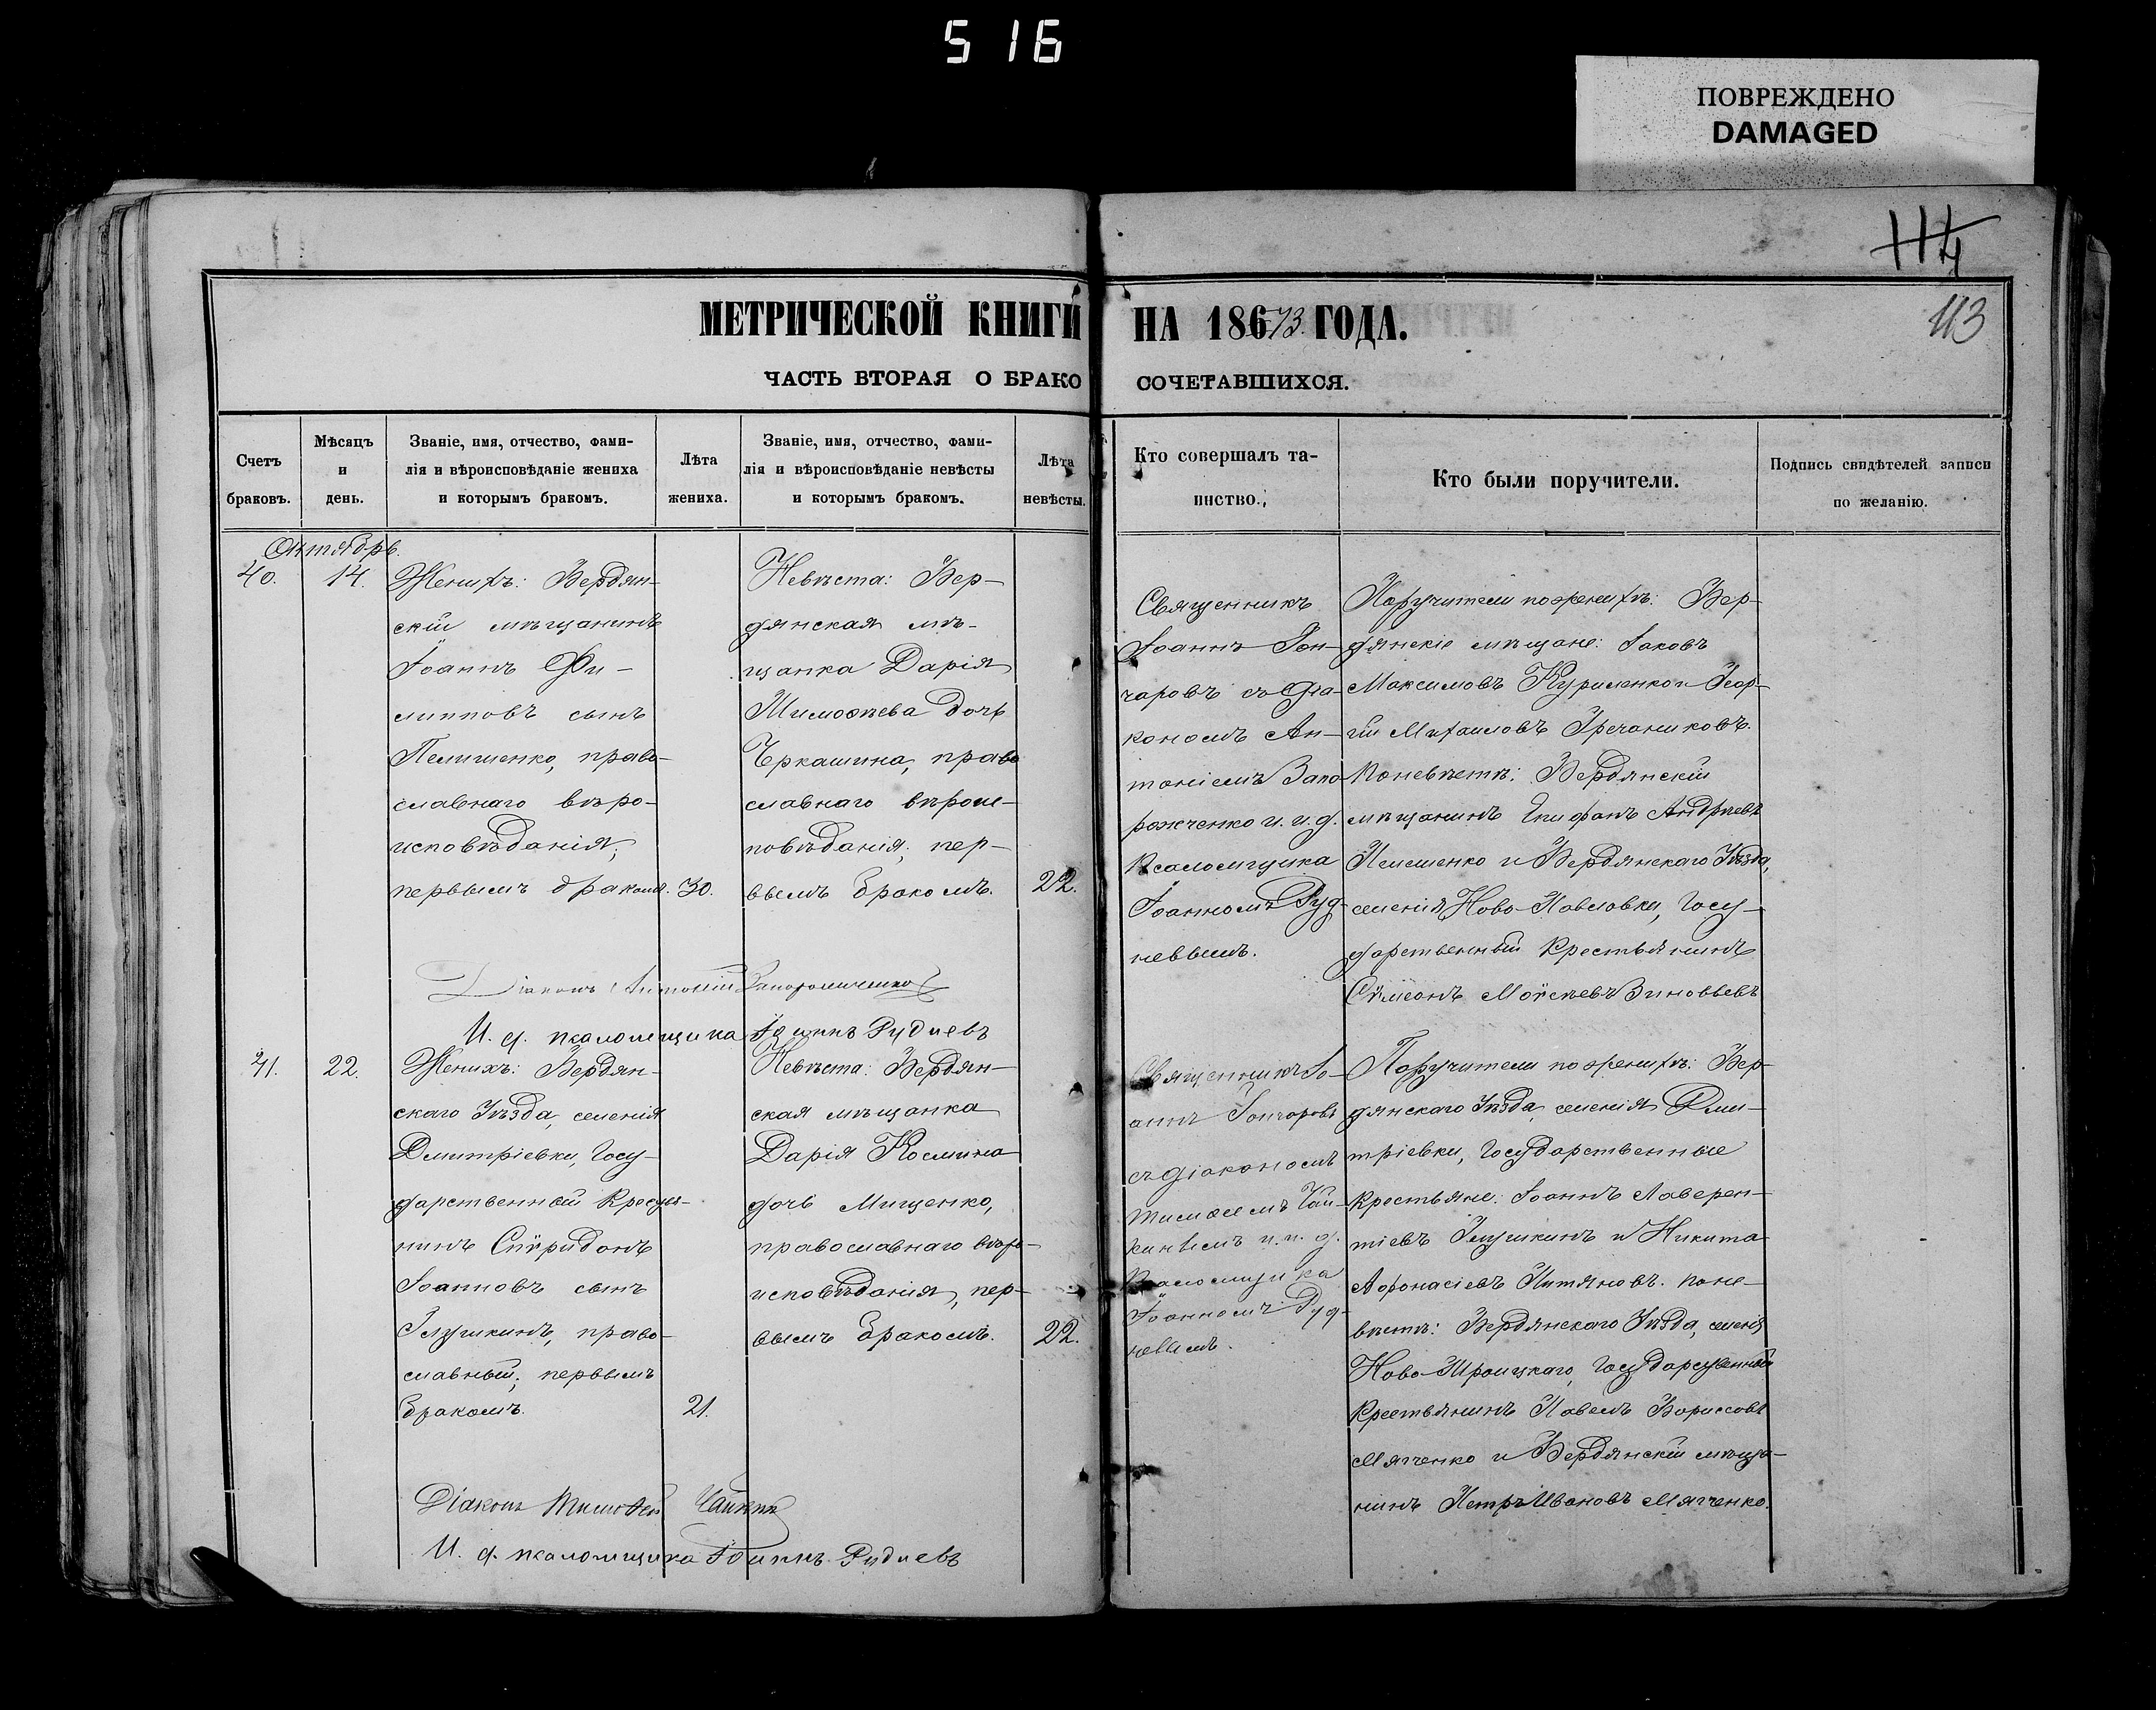 516
ПОВРЕЖДЕНО
DAMAGED
114
113
МЕТРИЧЕСКОЙ КНИГИ НА 18673. ГОДА.
ЧАСТЬ ВТОРАЯ О БРАКОСОЧЕТАВШИХСЯ.
Счетъ
браковъ.
Мѣсяцъ
и
день.
Званіе, имя, отчество, фами-
лія и вѣроисповѣданіе жениха
и которымъ бракомъ.
Лѣта
жениха.
Званіе, имя, отчество, фами-
лія и вѣроисповѣданіе невѣсты
и которымъ бракомъ.
Лѣта
невѣсты.
Кто совершалъ та-
инство.
Кто были поручители.
Подпись свидѣтелей записи
по желанію.
Октябрь.
40.
14.
Женихъ: Бердян-
скій мѣщанинъ
Іоаннъ Фи-
липповъ сынъ
Пелишенко, право-
славнаго вѣро-
исповѣданія;
первымъ бракомъ.
30.
Невѣста: Бер-
дянская мѣ-
щанка Дарія
Тимоѳѣева дочь
Черкашина, право
славнаго вѣроис-
повѣданія; пер-
вымъ бракомъ.
22.
Священникъ
Іоаннъ Гон-
чаровъ съ діа-
кономъ Ан-
тоніемъ Запо
рожченко и. и. д.
Псаломщика
Іоанномъ Руд-
невымъ.
Поручители по женихѣ: Бер-
дянскіе мѣщане: Іаковъ
Максимовъ Куриленко и Геор-
гій Михаиловъ Гречаниковъ.
По невѣстѣ: Бердянскій
мѣщанинъ Епифанъ Андреевъ
и Бердянскаго Уѣзда,
селенія Ново-Павловки, Госу-
дарственный Крестьянинъ
Сѵмеонъ Моѵсѣевъ Зиновьевъ
Діаконъ Антоній Запорожченко
И. д. псаломщика Іоаннъ Рудневъ
41.
22.
Женихъ: Бердян-
скаго Уѣзда, селенія
Дмитріевки, Госу-
дарственный Крестья-
нинъ Спѵридонъ
Іоанновъ сынъ
Глушкинъ, право-
славный; первымъ
бракомъ.
21.
Невѣста: Бердян-
ская мѣщанка
Дарія Космина
дочь Мищенко,
православнаго вѣро-
исповѣданія, пер-
вымъ бракомъ.
22.
Священникъ Іо-
аннъ Гончаровъ
съ діакономъ
Тимоѳеемъ Чай-
кинымъ и. и. д.
Псаломщика
Іоанномъ Руд-
невымъ.
Поручители по женихѣ: Бер-
дянскаго Уѣзда, селенія Дми-
тріевки, Государственные
Крестьяне: Іоаннъ Лаверен-
тіевъ Глушкинъ и Никита
Афонасіевъ Питяновъ. По не-
вѣстѣ: Бердянскаго Уѣзда, селенія
Ново-Троицкаго, Государственный
Крестьянинъ Павелъ Борисовъ
Мягченко и Бердянскій мѣща-
нинъ Петръ Ивановъ Мягченко.
Діаконъ Тимоѳей Чайкинъ
И. д. псаломщика Іоаннъ Рудневъ